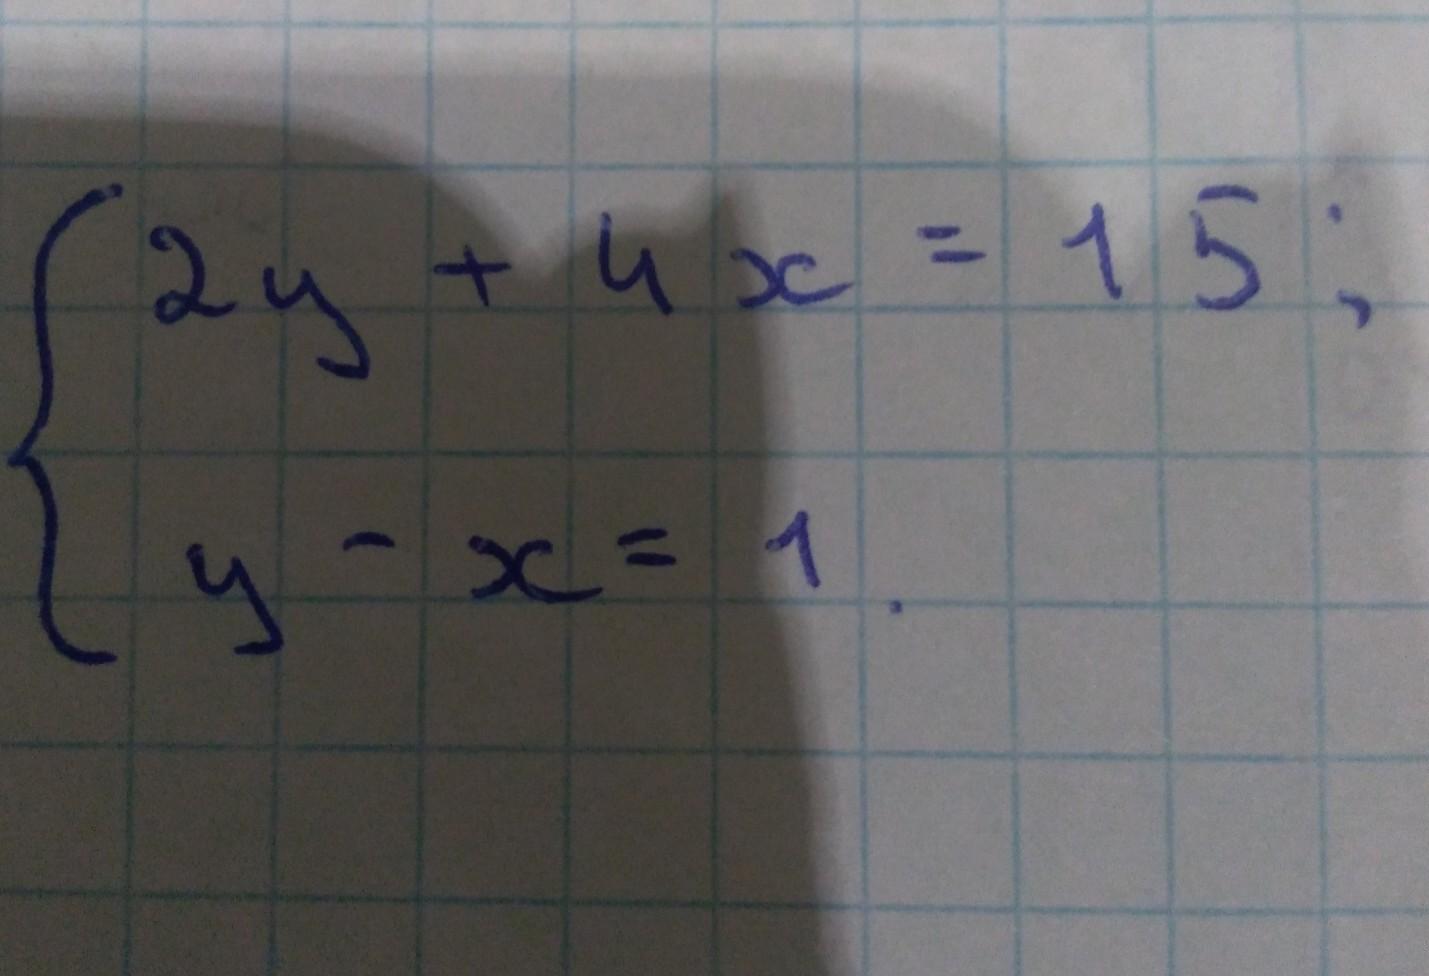 2y + 4x = 15;
y - x = 1.